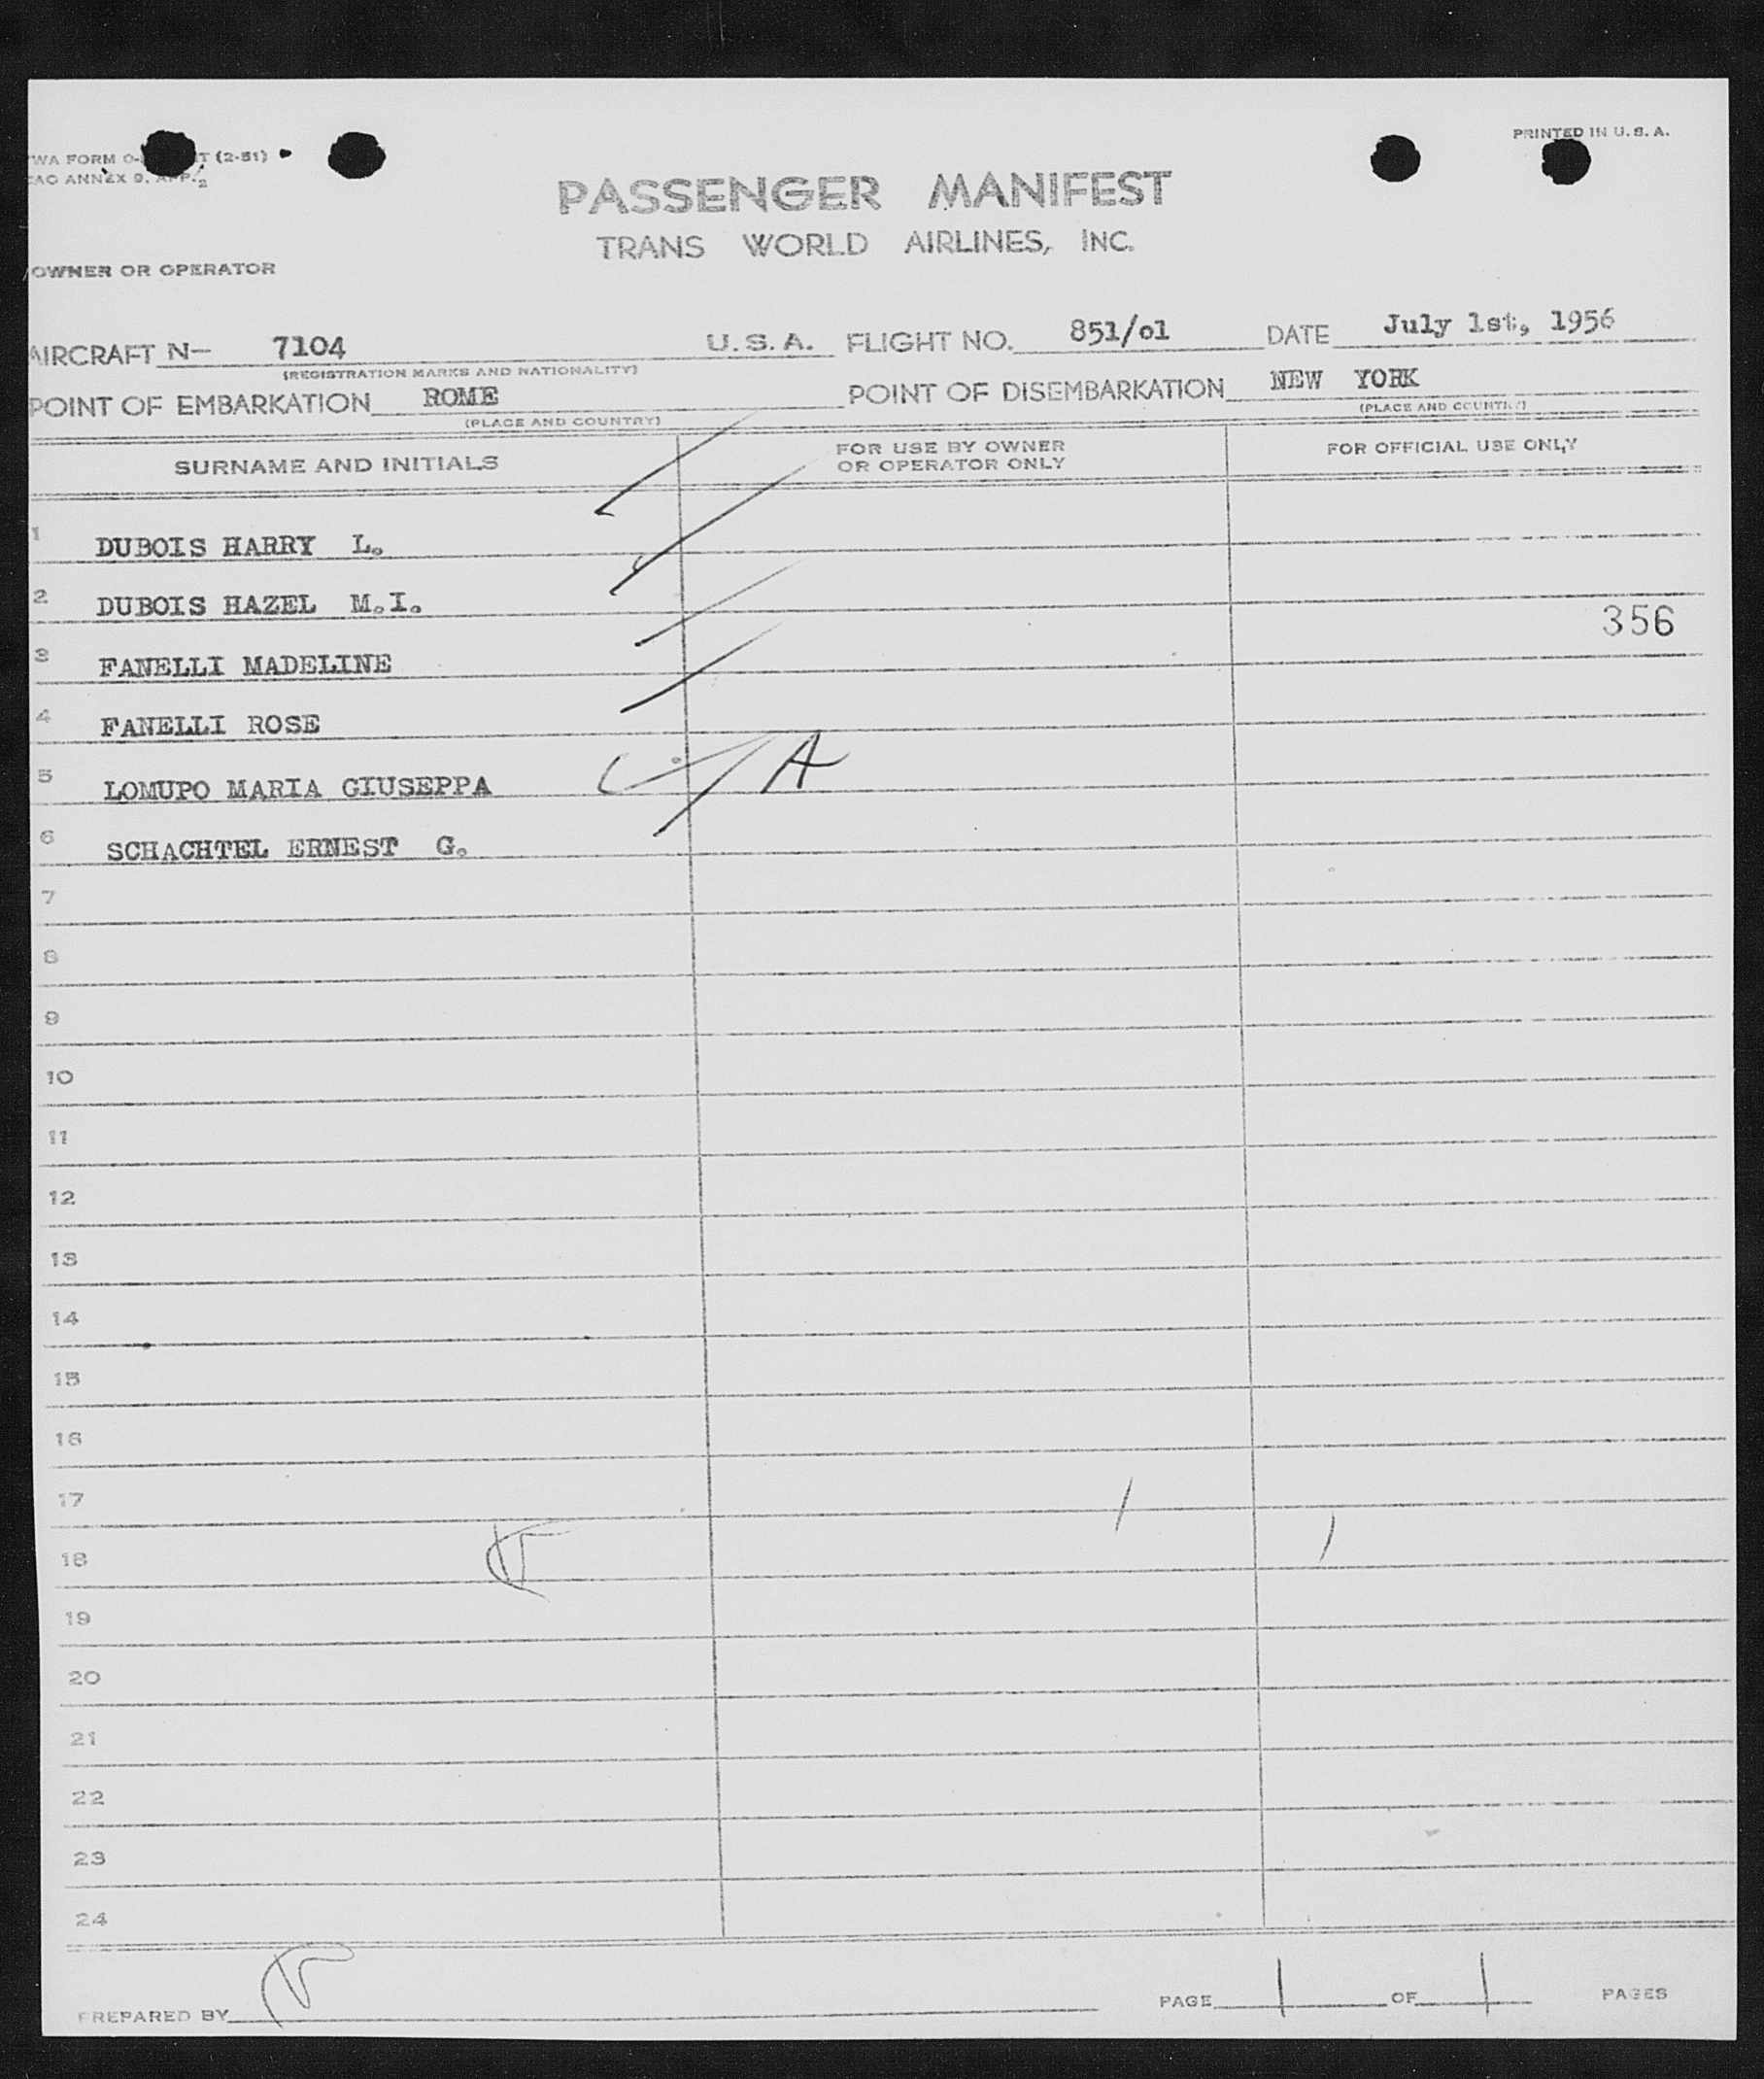 PRINTED IN U. S. A.
WA FORM O- T (2-51)
CAO ANNEX 9, APP. 2
PASSENGER MANIFEST
TRANS WORLD AIRLINES, INC.
OWNER OR OPERATOR
AIRCRAFT N- 7104 U. S. A. FLIGHT NO. 851/o1 DATE July 1st, 1956
(REGISTRATION MARKS AND NATIONALITY)
POINT OF EMBARKATION ROME POINT OF DISEMBARKATION NEW YORK
(PLACE AND COUNTRY) (PLACE AND COUNTRY)
SURNAME AND INITIALS FOR USE BY OWNER OR OPERATOR ONLY FOR OFFICIAL USE ONLY
1 DUBOIS HARRY L.
2 DUBOIS HAZEL M.I.
356
3 FANELLI MADELINE
4 FANELLI ROSE
5 LOMUPO MARIA GIUSEPPA A
6 SCHACHTEL ERNEST G.
7
8
9
10
11
12
13
14
15
16
17
18
19
20
21
22
23
24
PREPARED BY PAGE 1 OF 1 PAGES